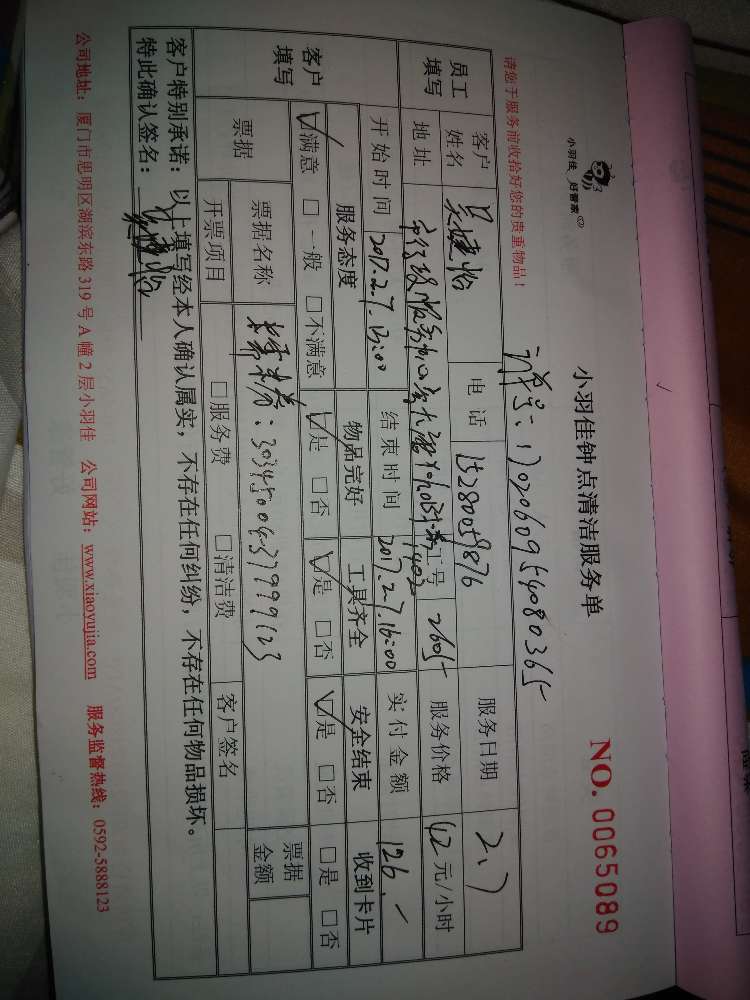 小羽佳 好管家
小羽佳钟点清洁服务单
NO. 0065089
请您于服务前收拾好您的贵重物品！
订单号：1702060954080365
员工填写
客户姓名 吴婕怡 电话 15280059876 服务日期 2.7
地址 工号 2605 服务价格 42元/小时
开始时间 2017.2.7.13:00 结束时间 2017.2.7.16:00 实付金额 126.-
客户填写
服务态度 物品完好 工具齐全 安全结束 收到卡片
☑满意 □一般 □不满意 ☑是 □否 ☑是 □否 ☑是 □否 □是 □否
票据 票据名称 ：3034500437999123 票据金额
开票项目 □服务费 □清洁费 客户签名
客户特别承诺：以上填写经本人确认属实，不存在任何纠纷，不存在任何物品损坏。
特此确认签名：吴婕怡
公司地址：厦门市思明区湖滨东路319号A幢2层小羽佳 公司网站：www.xiaoyujia.com 服务监督热线：0592-5888123